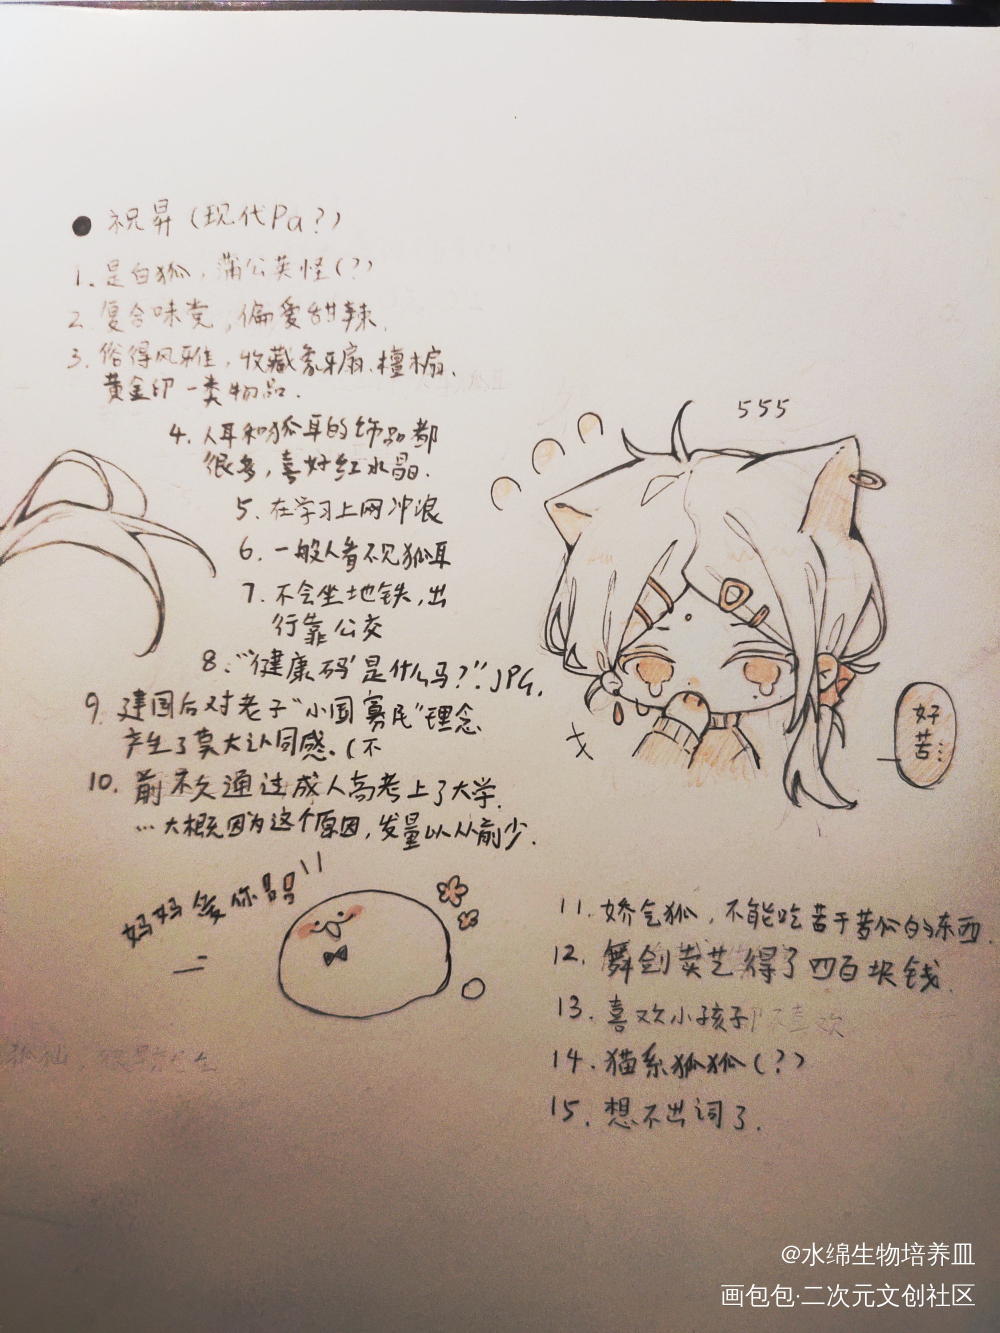 ● 祝昇（现代Pa？）
1. 是白狐，蒲公英怪（？）
2. 复合味党，偏爱甜辣.
3. 俗得风雅，收藏象牙扇、檀木扇、
黄金印一类物品.
4. 人耳和狐耳的饰品都
很多，喜好红水晶.
5. 在学习上网冲浪
6. 一般人看不见狐耳
7. 不会坐地铁，出
行靠公交
8. “‘健康码’是什么马？”.JPG.
9. 建国后对老子“小国寡民”理念
产生了莫大认同感.（不
10. 前不久通过成人高考上了大学.
…大概因为这个原因，发量以从前少.
妈妈爱你!!
555
好
苦…
11. 娇气狐，不能吃苦于苦瓜的东西.
12. 舞剑卖艺得了四百块钱.
13. 喜欢小孩子
14. 猫系狐狐（？）
15. 想不出词了.
@水绵生物培养皿
画包包·二次元文创社区